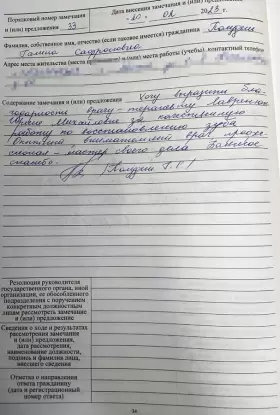 Порядковый номер замечания
и (или) предложения 33
Дата внесения замечания и (или) предложения
"10" 02 2023 г.
Фамилия, собственное имя, отчество (если таковое имеется) гражданина
Галина
Адрес места жительства (места пребывания) и (или) места работы (учебы), контактный телефон
Содержание замечания и (или) предложения Хочу выразить бла-
годарность врачу-терапевту
Михайловне за качественную
работу по восстановлению зуба
Опытный, внимательный врач профес-
сионал - мастер своего дела. Большое
спасибо.
Резолюция руководителя
государственного органа, иной
организации, ее обособленного
подразделения с поручением
конкретным должностным
лицам рассмотреть замечание
и (или) предложение
Сведения о ходе и результатах
рассмотрения замечания
и (или) предложения,
дата рассмотрения,
наименование должности,
подпись и фамилия лица,
внесшего сведения
Отметка о направлении
ответа гражданину
(дата и регистрационный
номер ответа)
34